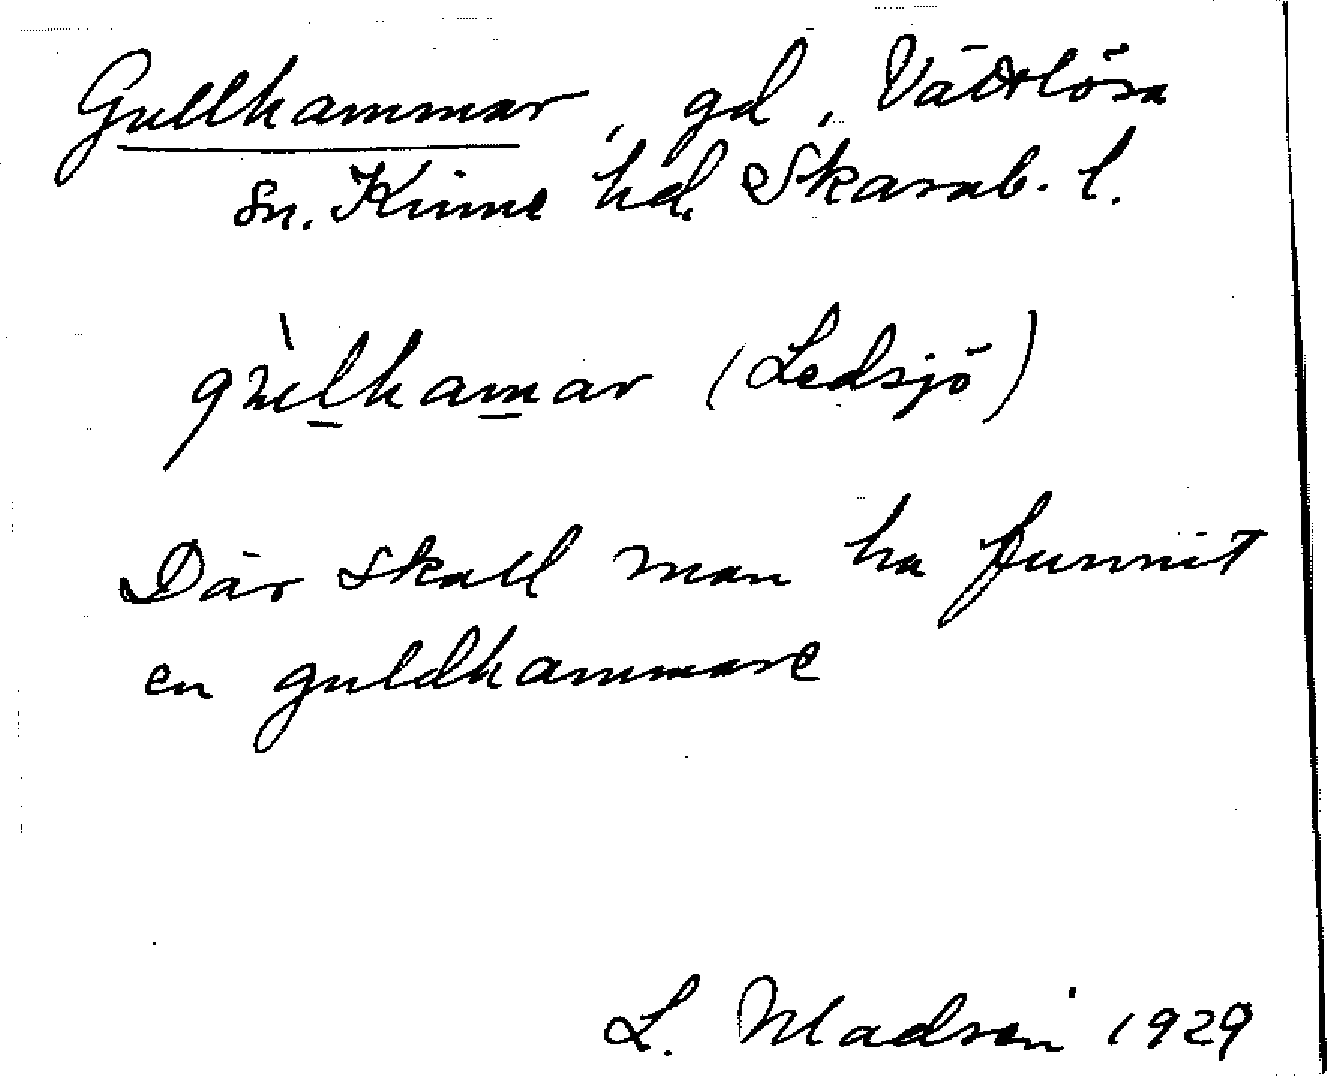 Gullhammar, gd, Vättlösa
sn. Kinne hd. Skarab. l.
gùlhamar (Ledsjö)
Där skall man ha funnit
en guldhammare
L. Madsén 1929